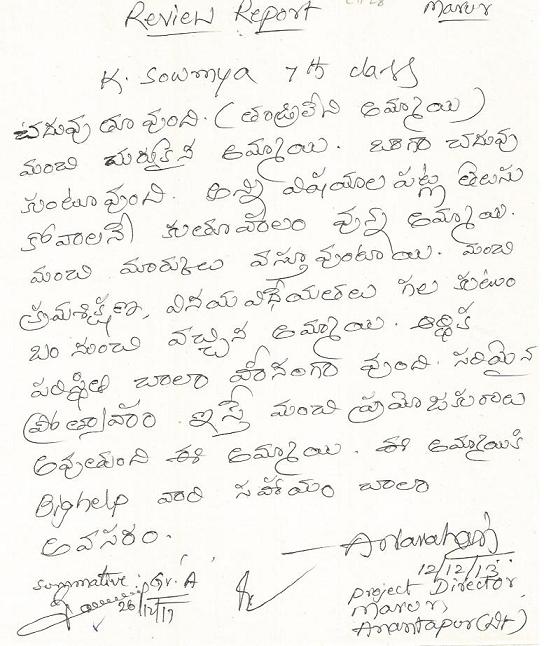 Review Report
Marur
K. Sowmya 7th class
చదువుతూ వుంది. (తండ్రిలేని అమ్మాయి)
మంచి చురుకైన అమ్మాయి. బాగా చదువు
కుంటూ వుంది. అన్ని విషయాల పట్ల తెలుసు
కోవాలనే కుతూహలం వున్న అమ్మాయి.
మంచి మార్కులు వస్తూ వుంటాయి. మంచి
క్రమశిక్షణ, వినయ విధేయతలు గల కుటుం
బం నుంచి వచ్చిన అమ్మాయి. ఆర్థిక
పరిస్థితి చాలా హీనంగా వుంది. సరియైన
ప్రోత్సాహం ఇస్తే మంచి ప్రయోజకురాలు
అవుతుంది ఈ అమ్మాయి. ఈ అమ్మాయికి
Bighelp వారి సహాయం చాలా
అవసరం.
12/12/13
Summative: Gr. A
Project Director
Marur,
Anantapur(Dt)